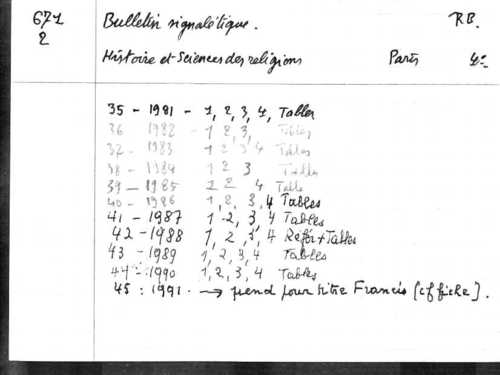 671 Bulletin signalétique. RB.
2
Histoire et Sciences des religions Paris 4º
35 - 1981 - 1, 2, 3, 4, Tables
36 1982 - 1 2, 3, Tables
37 - 1983 1 2 3 4 Tables
38 - 1984 1 2 3 Tables
39 - 1985 2 2 4 Table
40 - 1986 1, 2, 3, 4 Tables
41 - 1987 1 2, 3, 4 Tables
42 - 1988 1, 2, 3, 4 Refer + Tables
43 - 1989 1, 2, 3, 4 Tables
44 - 1990 1, 2, 3, 4 Tables
45 : 1991. → prend pour titre Francis [cf fiche].